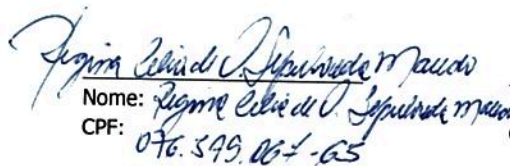 Regina Celia de O. Sepulveda Macedo
Nome: Regina Celia de O. Sepulveda
CPF:
076.599.067-65